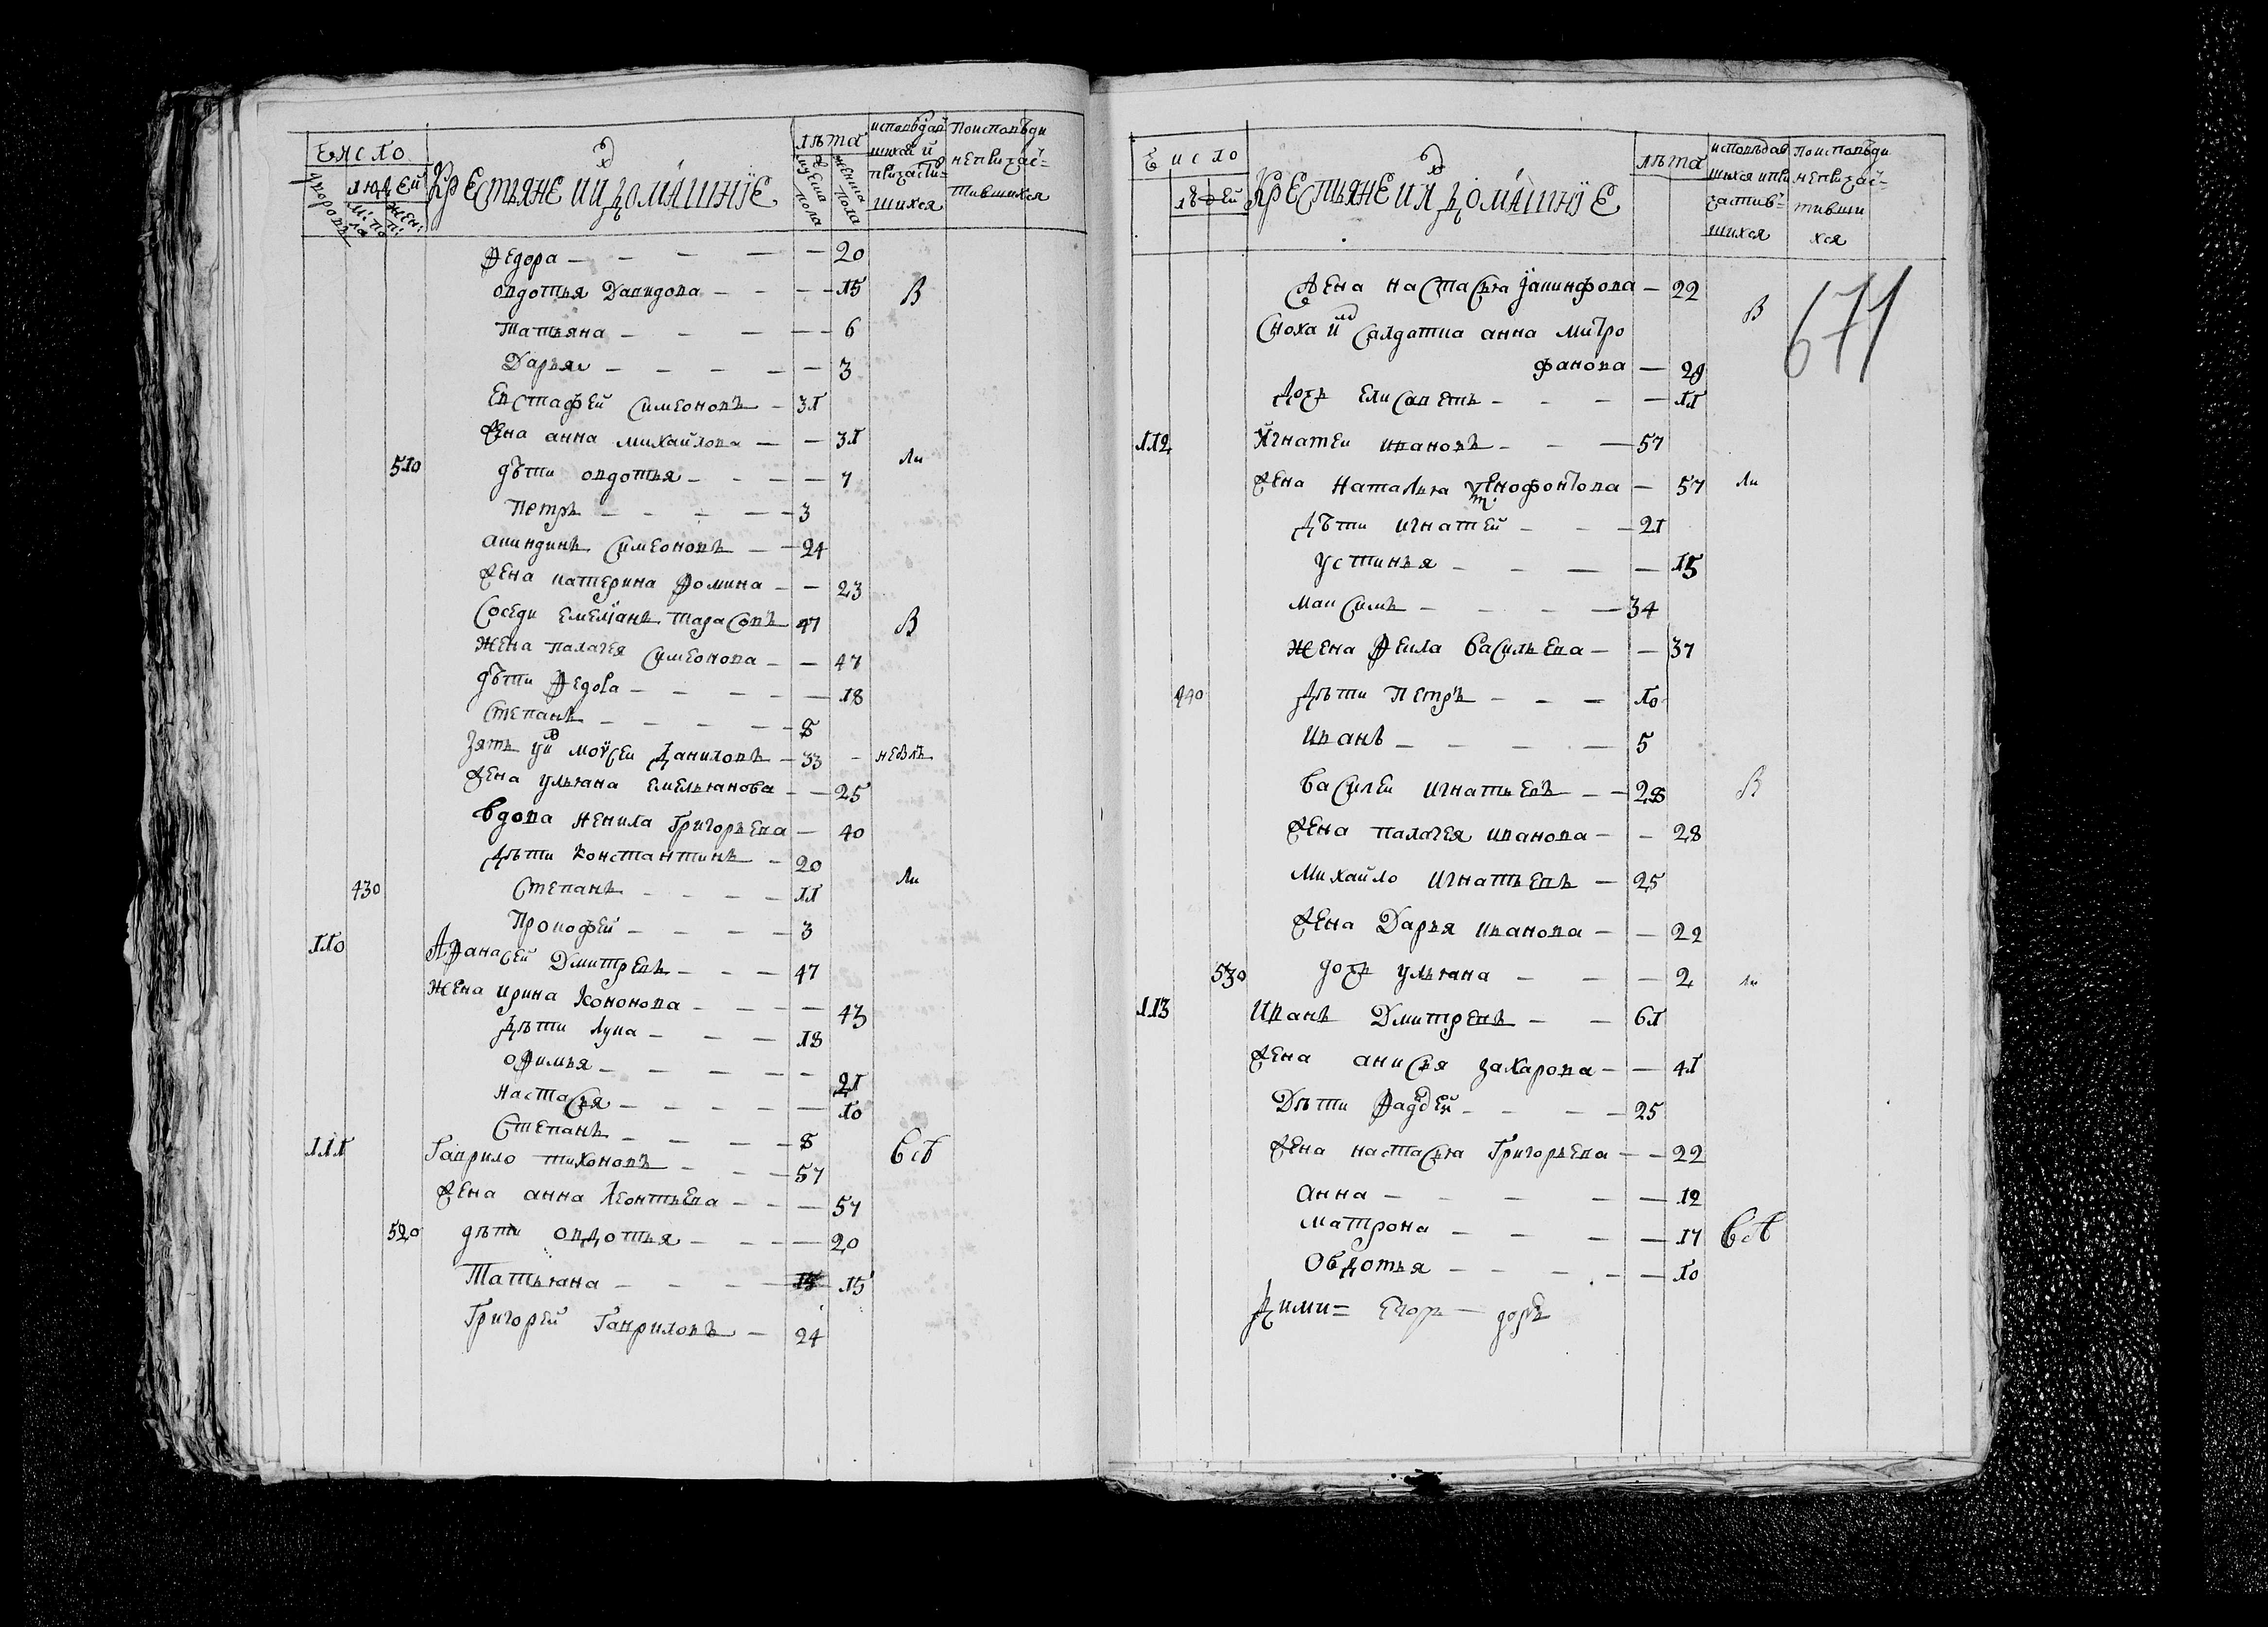 Число
дворовъ
людей
муж: пола
жен: п:
Крестьяне и ихъ домашніе
лѣта
мужеска пола
женска пола
исповѣдав
шихся и
причасти-
вшихся
По исповѣди
непричас-
тившихся
Федора — 20
Овдотья Давидова — 15 В
Татьяна — 6
Дарья — 3
Евстафей Симеоновъ — 31
Жена анна михайлова — 31
510 дѣти овдотья — 7 ли
Петръ — 3
Акиндинъ Симеоновъ — 24
Жена катерина Фомина — 23
Соседи емеліанъ тарасовъ 47 В
Жена палагея Симеонова — 47
дѣти Федора — 18
Степанъ — 8
Зять ихъ моѵсеи Даниловъ — 33 — небылъ
Жена ульяна емельянова — 25
Вдова ненила Григорьева — 40
Дѣти Константинъ — 20
430 Степанъ — 11 ли
Прокофей — 3
110 Афанасей Дмитревъ — 47
Жена ирина Кононова — 43
Дѣти лука — 18
офимья — 21
Настасья — 10
Степанъ — 8
111 Гаврило тихоновъ — 57 всѣ
Жена анна Леонтьева — 57
520 дѣти овдотья — 20
Татьяна — 15 15
Григорей Гавриловъ — 24
Число
людей
Крестьяне ихъ домашніе
лѣта
исповѣдав
шихся и при
частив-
шихся
По исповѣди
непричас-
тивши
хся
671
Жена настасья Іакинфова — 22 В
Сноха ихъ Салдатка анна митро
фанова — 29
Дочь елисаветъ — 11
112 Игнатеи ивановъ — 57
Жена наталья Ксенофонтова — 57 ли
Дѣти игнатей — 21
устинья — 15
максимъ — 34
Жена Фекла Васильева — 37
440 Дѣти Петръ — 10
Иванъ — 5
Василеи игнатьевъ — 28 В
Жена палагея иванова — 28
Михайло игнатьевъ — 25
Жена Дарья иванова — 22
530 дочь ульяна — 2 ли
113 Иванъ Дмитревъ — 61
Жена анисья Захарова — 41
Дѣти Фаддей — 25
Жена настасья Григорьева — 22
анна — 12
матрона — 17 всѣ
Овдотья — 10